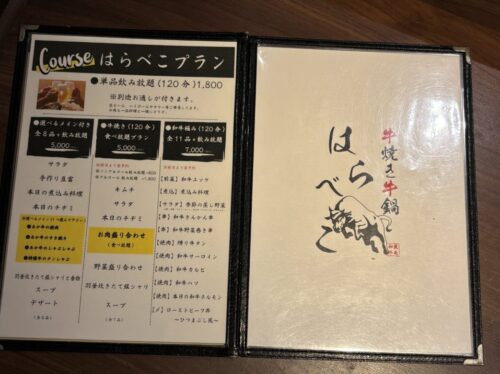 Course はらぺこプラン
●単品飲み放題(120分)1,800
※別途お通しが付きます。
●選べるメイン付き
全8品+飲み放題
5,000
サラダ
手作り豆富
本日の煮込み料理
本日のチヂミ
羽釜炊きたて銀シャリと香物
スープ
デザート
(全8品)
●牛焼き(120分)
食べ放題プラン
5,000
キムチ
サラダ
本日のチヂミ
お肉盛り合わせ
(食べ放題)
野菜盛り合わせ
羽釜炊きたて銀シャリ
スープ
●和牛極み(120分)
全11品+飲み放題
7,000
【前菜】和牛ユッケ
【煮込】煮込み料理
【サラダ】季節の蒸し野菜
【串】和牛さんかん串
【串】和牛野菜巻き串
【焼肉】縛り牛タン
【焼肉】和牛サーロイン
【焼肉】和牛カルビ
【焼肉】和牛ハツ
【焼肉】本日の和牛ホルモン
【〆】ローストビーフ丼
〜ひつまぶし風〜
牛焼き牛鍋
はらべこ